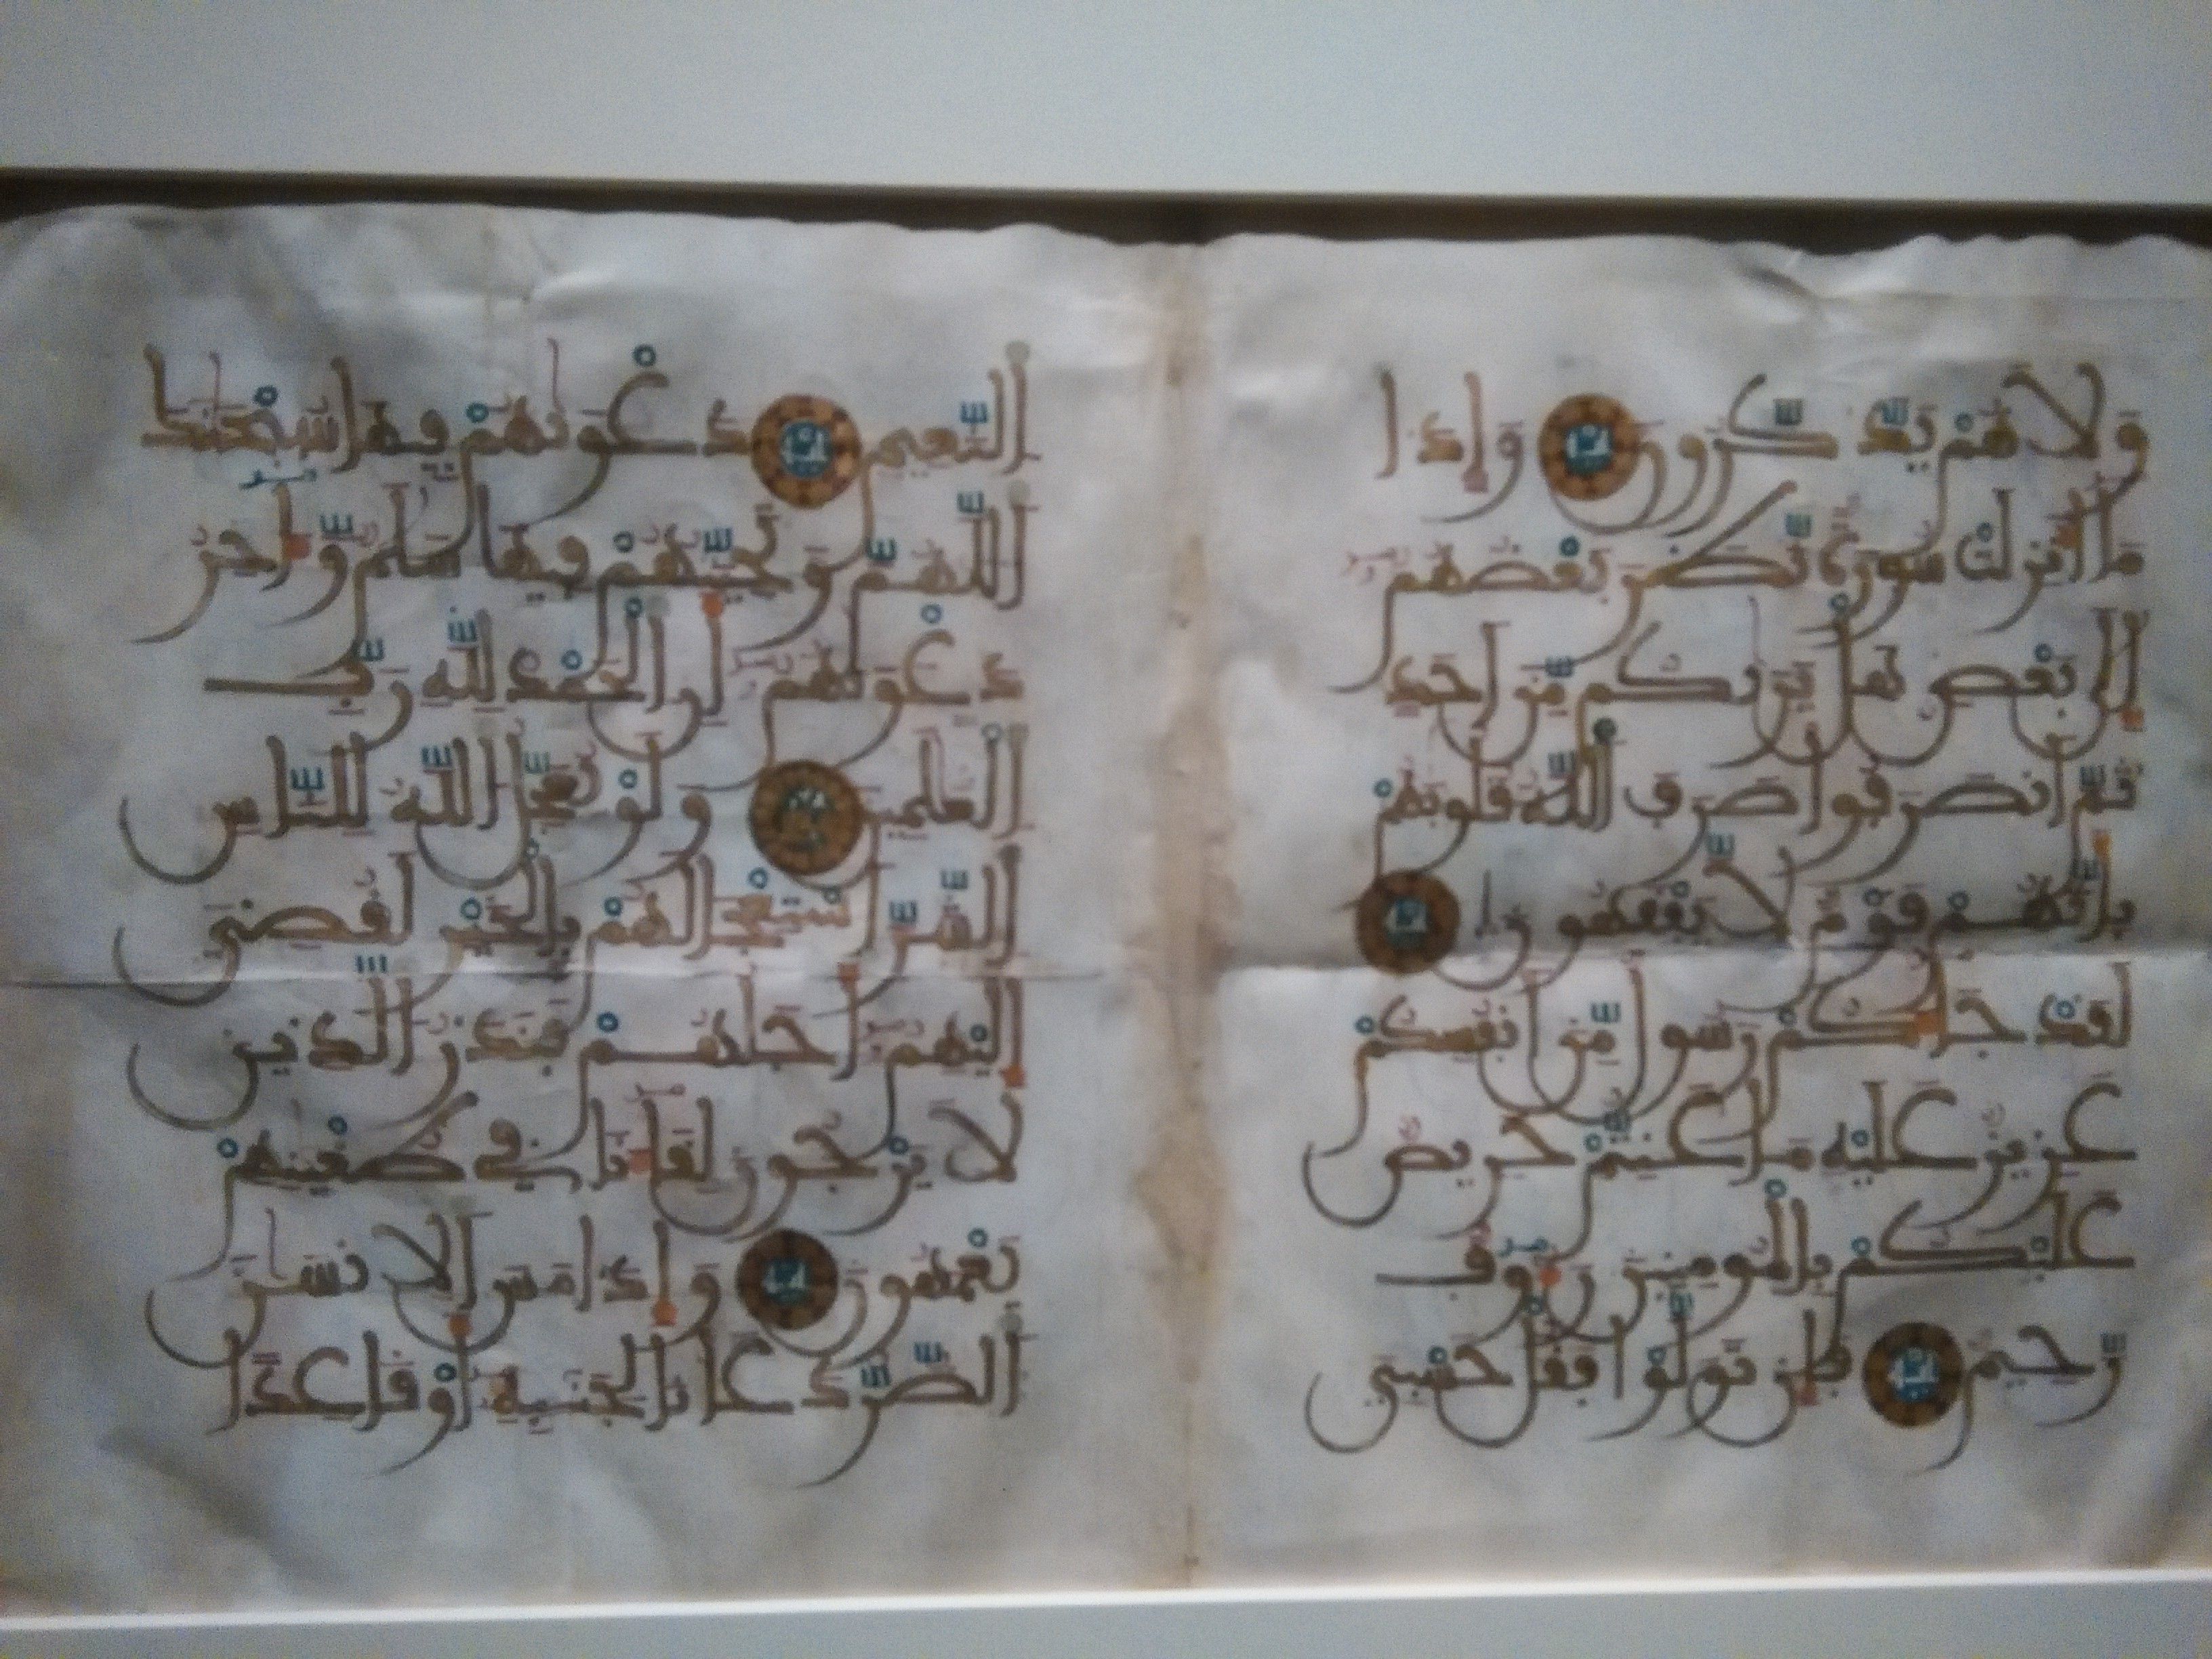 ولا هم يذكرون وإذا
ما أنزلت سورة نظر بعضهم
إلى بعض هل يريكم من أحد
ثم انصرفوا صرف الله قلوبهم
بأنهم قوم لا يفقهون
لقد جاءكم رسول من أنفسكم
عزيز عليه ما عنتم حريص
عليكم بالمؤمنين رءوف
رحيم فإن تولوا فقل حسبي
النعيم دعويهم فيها سبحنك
اللهم وتحيتهم فيها سلم وءاخر
دعويهم أن الحمد لله رب
العلمين ولو يعجل الله للناس
الشر استعجالهم بالخير لقضي
إليهم أجلهم فنذر الذين
لا يرجون لقاءنا في طغينهم
يعمهون وإذا مس الإنسن
الضر دعانا لجنبه أو قاعدا